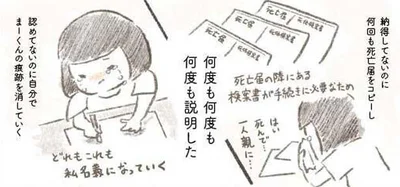 納得してないのに
何回も死亡届をコピーし
死亡届
死亡届
死亡届
死亡届の隣にある
検案書が手続きに必要なため
はい
死んで…
一人親に…
何度も何度も
何度も説明した
認めてないのに自分で
まーくんの痕跡を消していく
どれもこれも
私名義になっていく